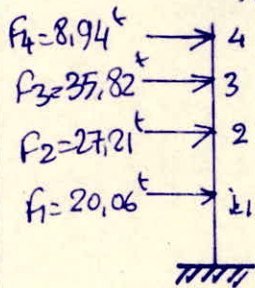 F4=8,94ᵗ 4
F3=35,82ᵗ 3
F2=27,21ᵗ 2
F1=20,06ᵗ k1